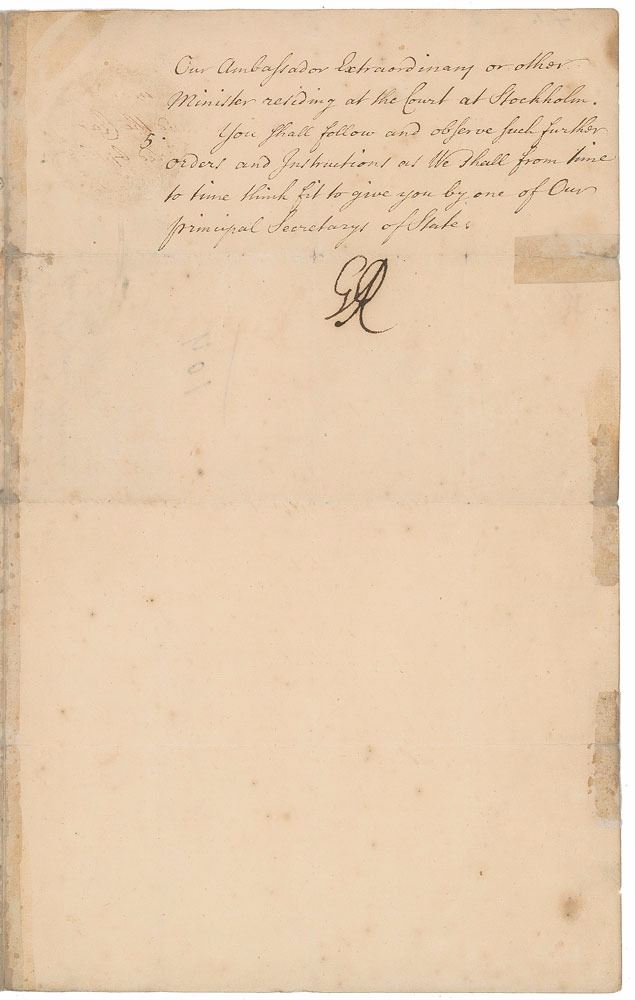 Our Ambassador Extraordinary or other
Minister residing at the Court at Stockholm.
5. You shall follow and observe such further
orders and Instructions as We shall from time
to time think fit to give you by one of Our
principal Secretarys of State.
GR